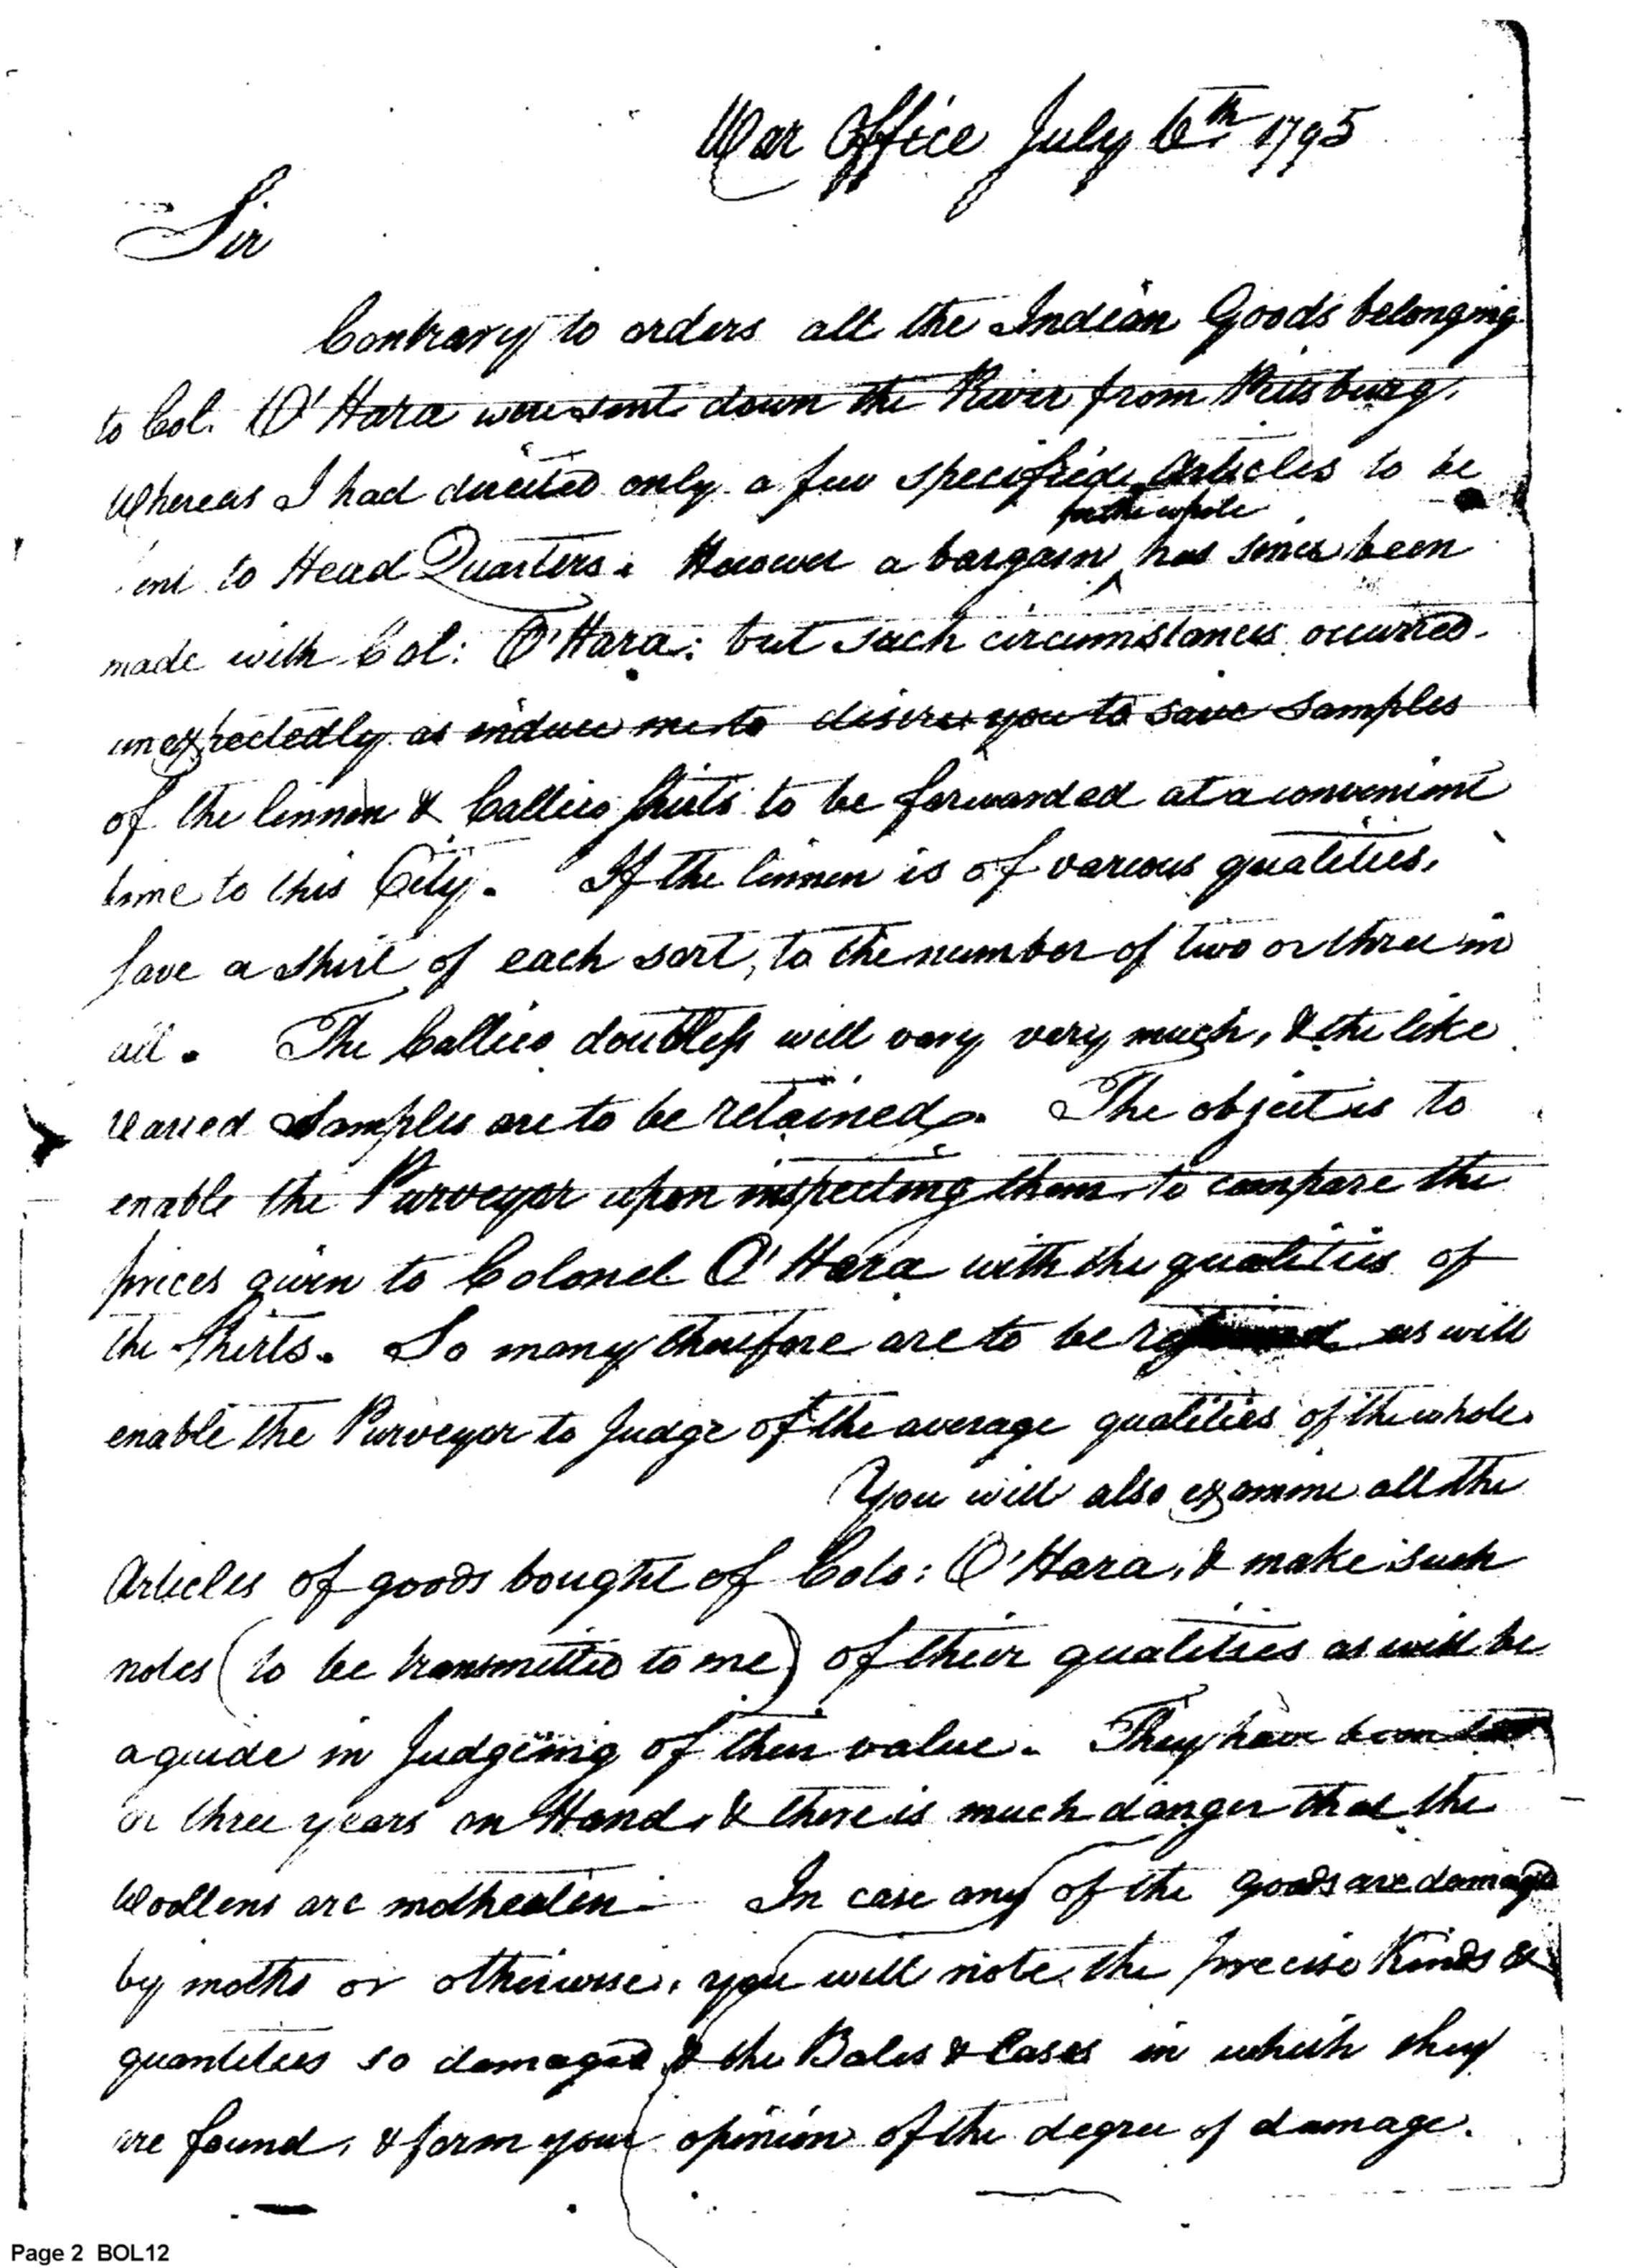 War Office July 6th 1795
Sir
Contrary to orders all the Indian Goods belonging
to Col. O'Hara were sent down the River from Pittsburg,
Whereas I had directed only a few specified Articles to be
for the whole
ent to Head Quarters. However a bargain ^ has since been
made with Col: O'Hara: but such circumstances occurred
unexpectedly as induce me to desire you to save samples
of the linnen & Callico shirts to be forwarded at a convenient
time to this City. If the linnen is of various qualities,
save a shirt of each sort, to the number of two or three in
all. The Callico doubtless will vary very much, & the like
varied Samples are to be retained. The object is to
enable the Purveyor upon inspecting them, to compare the
prices given to Colonel O'Hara with the qualities of
the Shirts. So many therefore are to be as will
enable the Purveyor to Judge of the average qualities of the whole.
You will also examine all the
Articles of goods bought of Colo: O'Hara, & make such
notes (to be transmitted to me) of their qualities as will be
a guide in Judgeing of their value. They have been
or three years on Hand, & there is much danger that the
Woollens are motheaten. In case any of the goods are damaged
by moths or otherwise, you will note the precise Kinds &
quantities so damaged & the Bales & Cases in which they
are found, & form your opinion of the degree of damage.
Page 2 BOL12